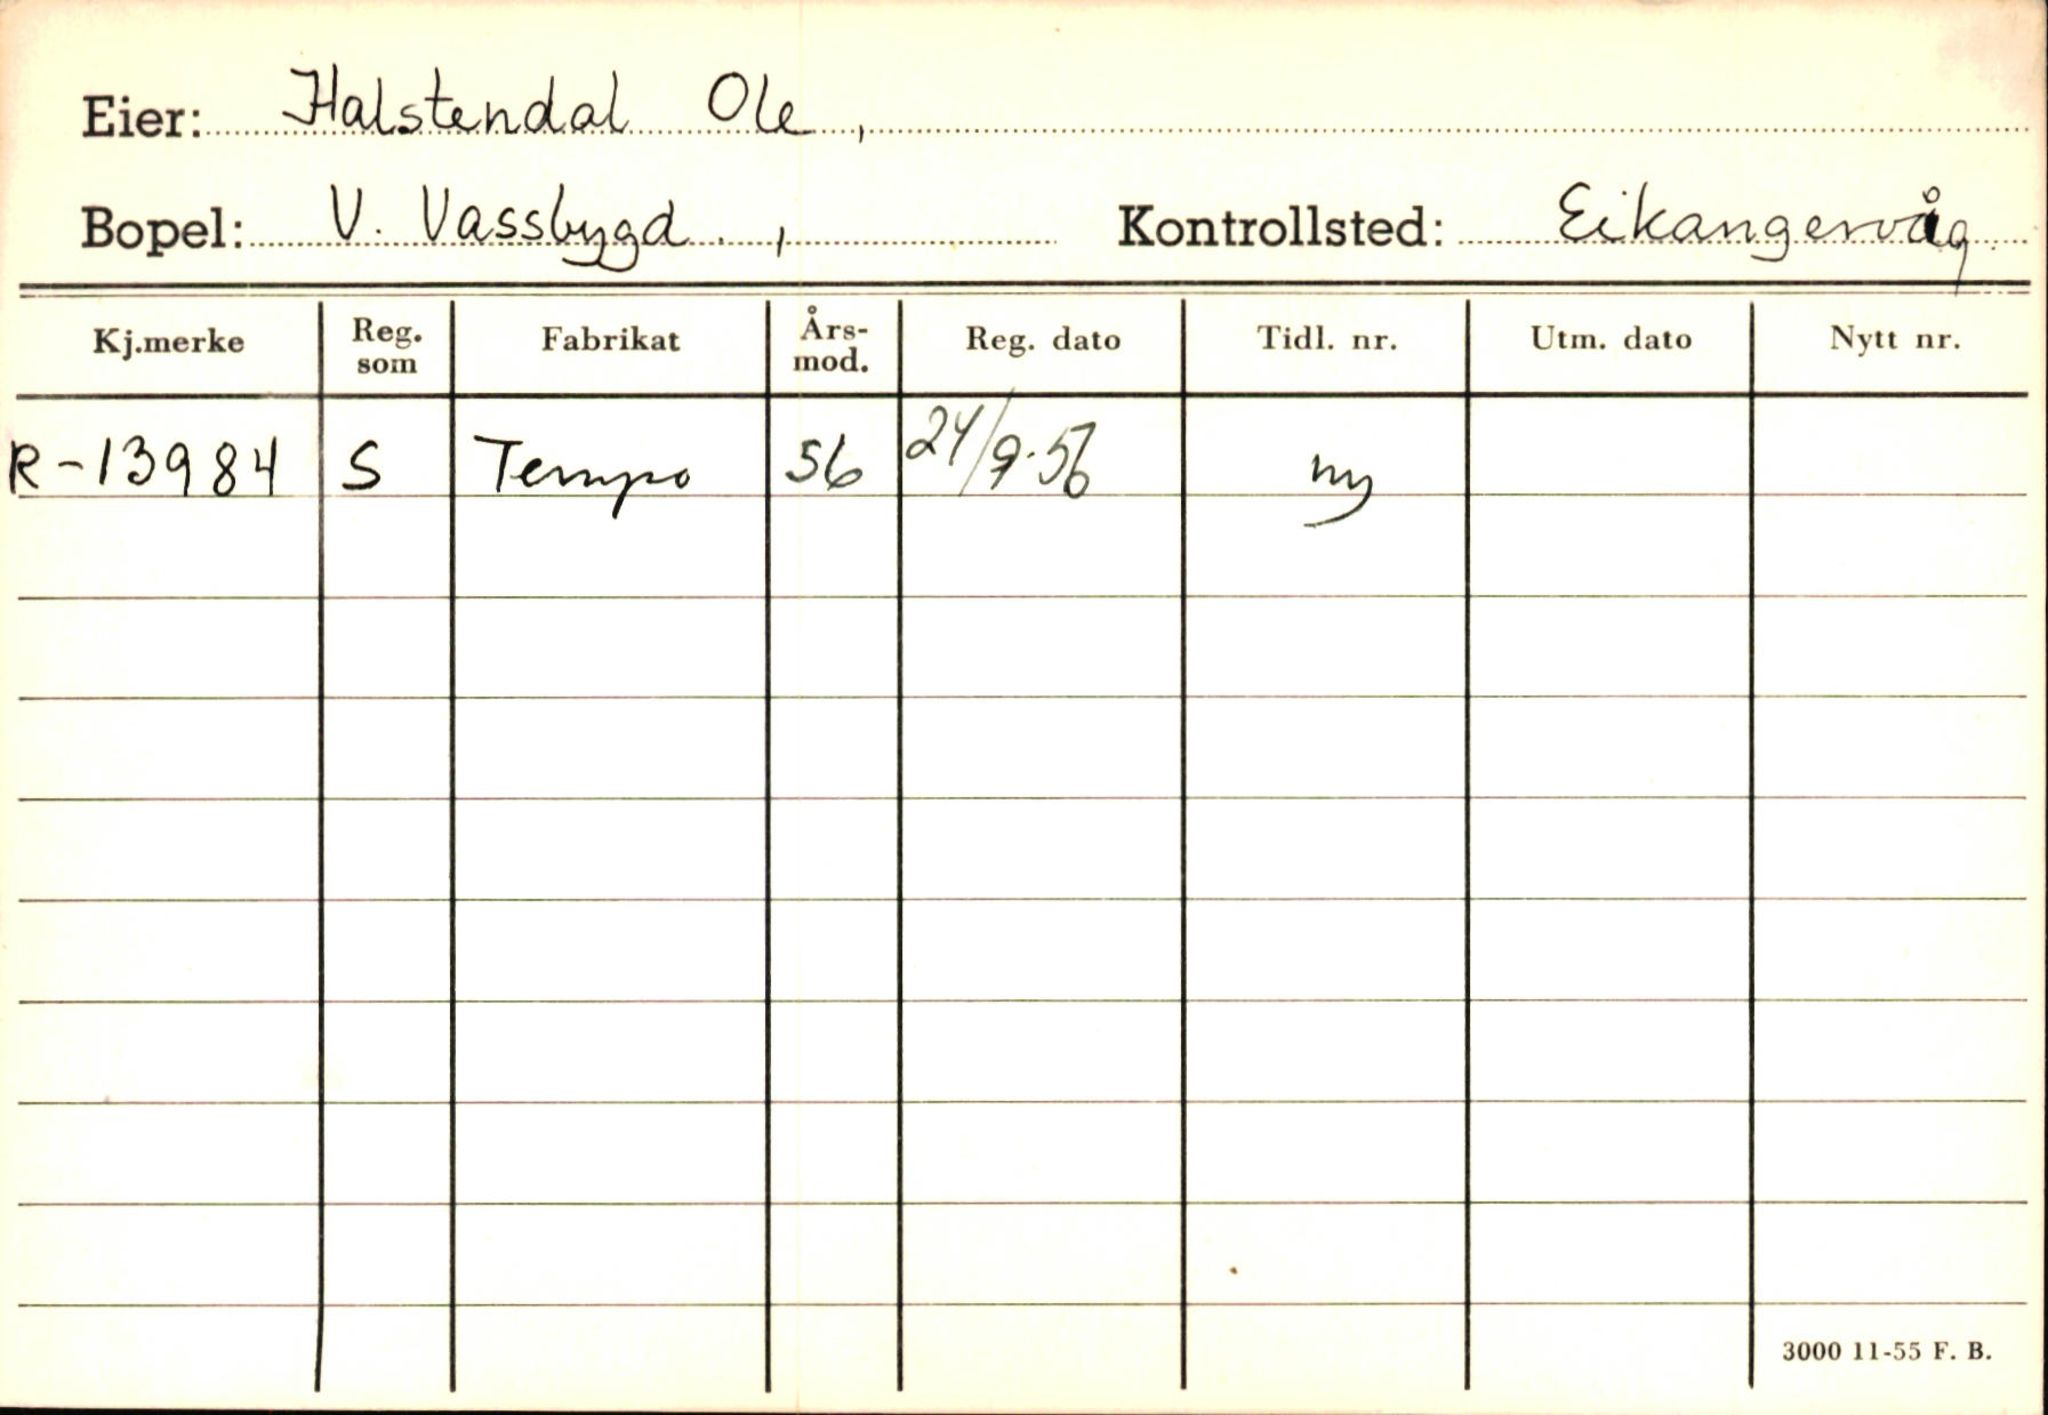 Eier: Halstendal Ole,
Bopel: V. Vassbygd. , Kontrollsted: Eikangervåg
Kj.merke Reg. som Fabrikat Års-mod. Reg. dato Tidl. nr. Utm. dato Nytt nr.
R-13984 S Tempo 56 24/9-56 ny
3000 11-55 F. B.